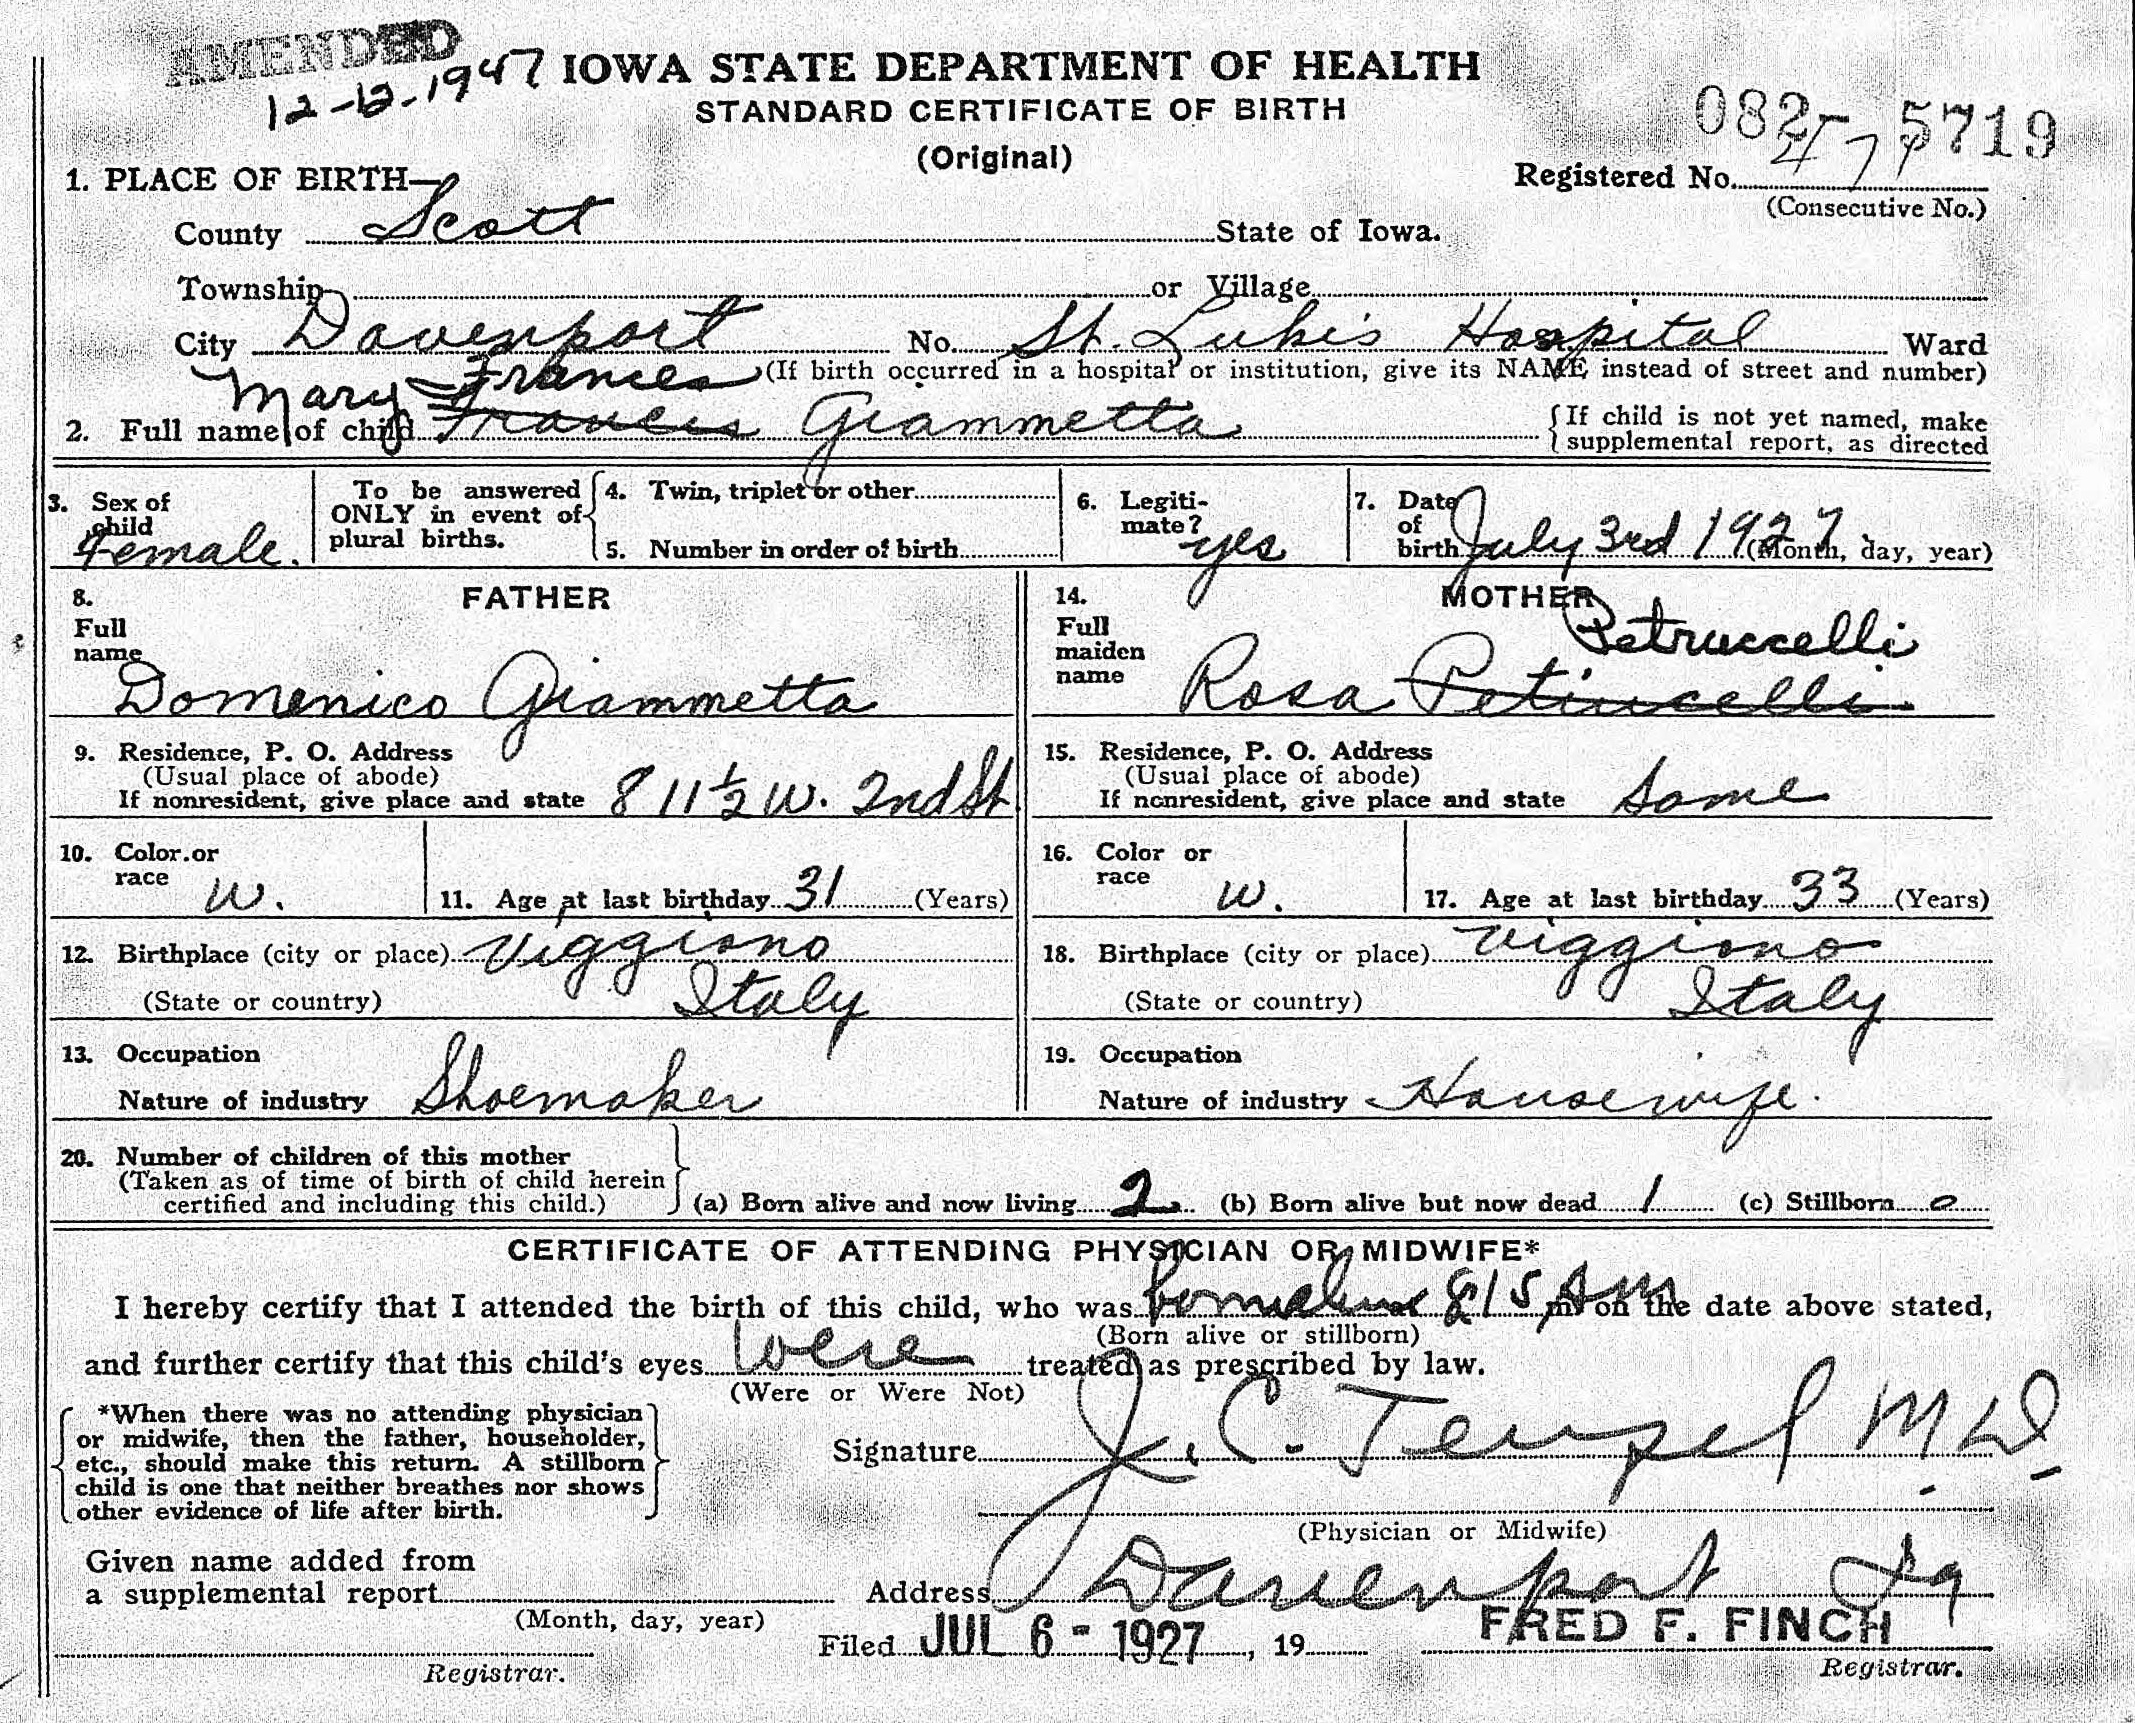 AMENDED
12-12-1947
IOWA STATE DEPARTMENT OF HEALTH
STANDARD CERTIFICATE OF BIRTH
(Original)
082- 5719
1. PLACE OF BIRTH—
Registered No. 477
(Consecutive No.)
County Scott State of Iowa.
Township or Village
City Davenport No. St. Luke's Hospital St. Ward
(If birth occurred in a hospital or institution, give its NAME instead of street and number)
Mary Frances
2. Full name of child Francis Giammetta
{If child is not yet named, make
supplemental report, as directed
3. Sex of child Female.
To be answered ONLY in event of plural births.
4. Twin, triplet or other
5. Number in order of birth
6. Legitimate? yes
7. Date of birth July 3rd 1927 (Month, day, year)
FATHER
8. Full name Domenico Giammetta
9. Residence, P. O. Address
(Usual place of abode)
If nonresident, give place and state 811½ W. 2nd St.
10. Color or race W.
11. Age at last birthday 31 (Years)
12. Birthplace (city or place) Viggiano
(State or country) Italy
13. Occupation
Nature of industry Shoemaker
MOTHER
Petruccelli
14. Full maiden name Rosa Petirucelli
15. Residence, P. O. Address
(Usual place of abode)
If nonresident, give place and state Same
16. Color or race W.
17. Age at last birthday 33 (Years)
18. Birthplace (city or place) Viggiano
(State or country) Italy
19. Occupation
Nature of industry Housewife.
20. Number of children of this mother
(Taken as of time of birth of child herein
certified and including this child.)
(a) Born alive and now living 2 (b) Born alive but now dead 1 (c) Stillborn 0
CERTIFICATE OF ATTENDING PHYSICIAN OR MIDWIFE*
I hereby certify that I attended the birth of this child, who was born alive at 815 AM m on the date above stated,
(Born alive or stillborn)
and further certify that this child's eyes were treated as prescribed by law.
(Were or Were Not)
*When there was no attending physician
or midwife, then the father, householder,
etc., should make this return. A stillborn
child is one that neither breathes nor shows
other evidence of life after birth.
Signature J. C. Teufel M.D.
(Physician or Midwife)
Given name added from
a supplemental report
(Month, day, year)
Registrar.
Address Davenport Ia
Filed JUL 6 - 1927, 19
FRED F. FINCH
Registrar.